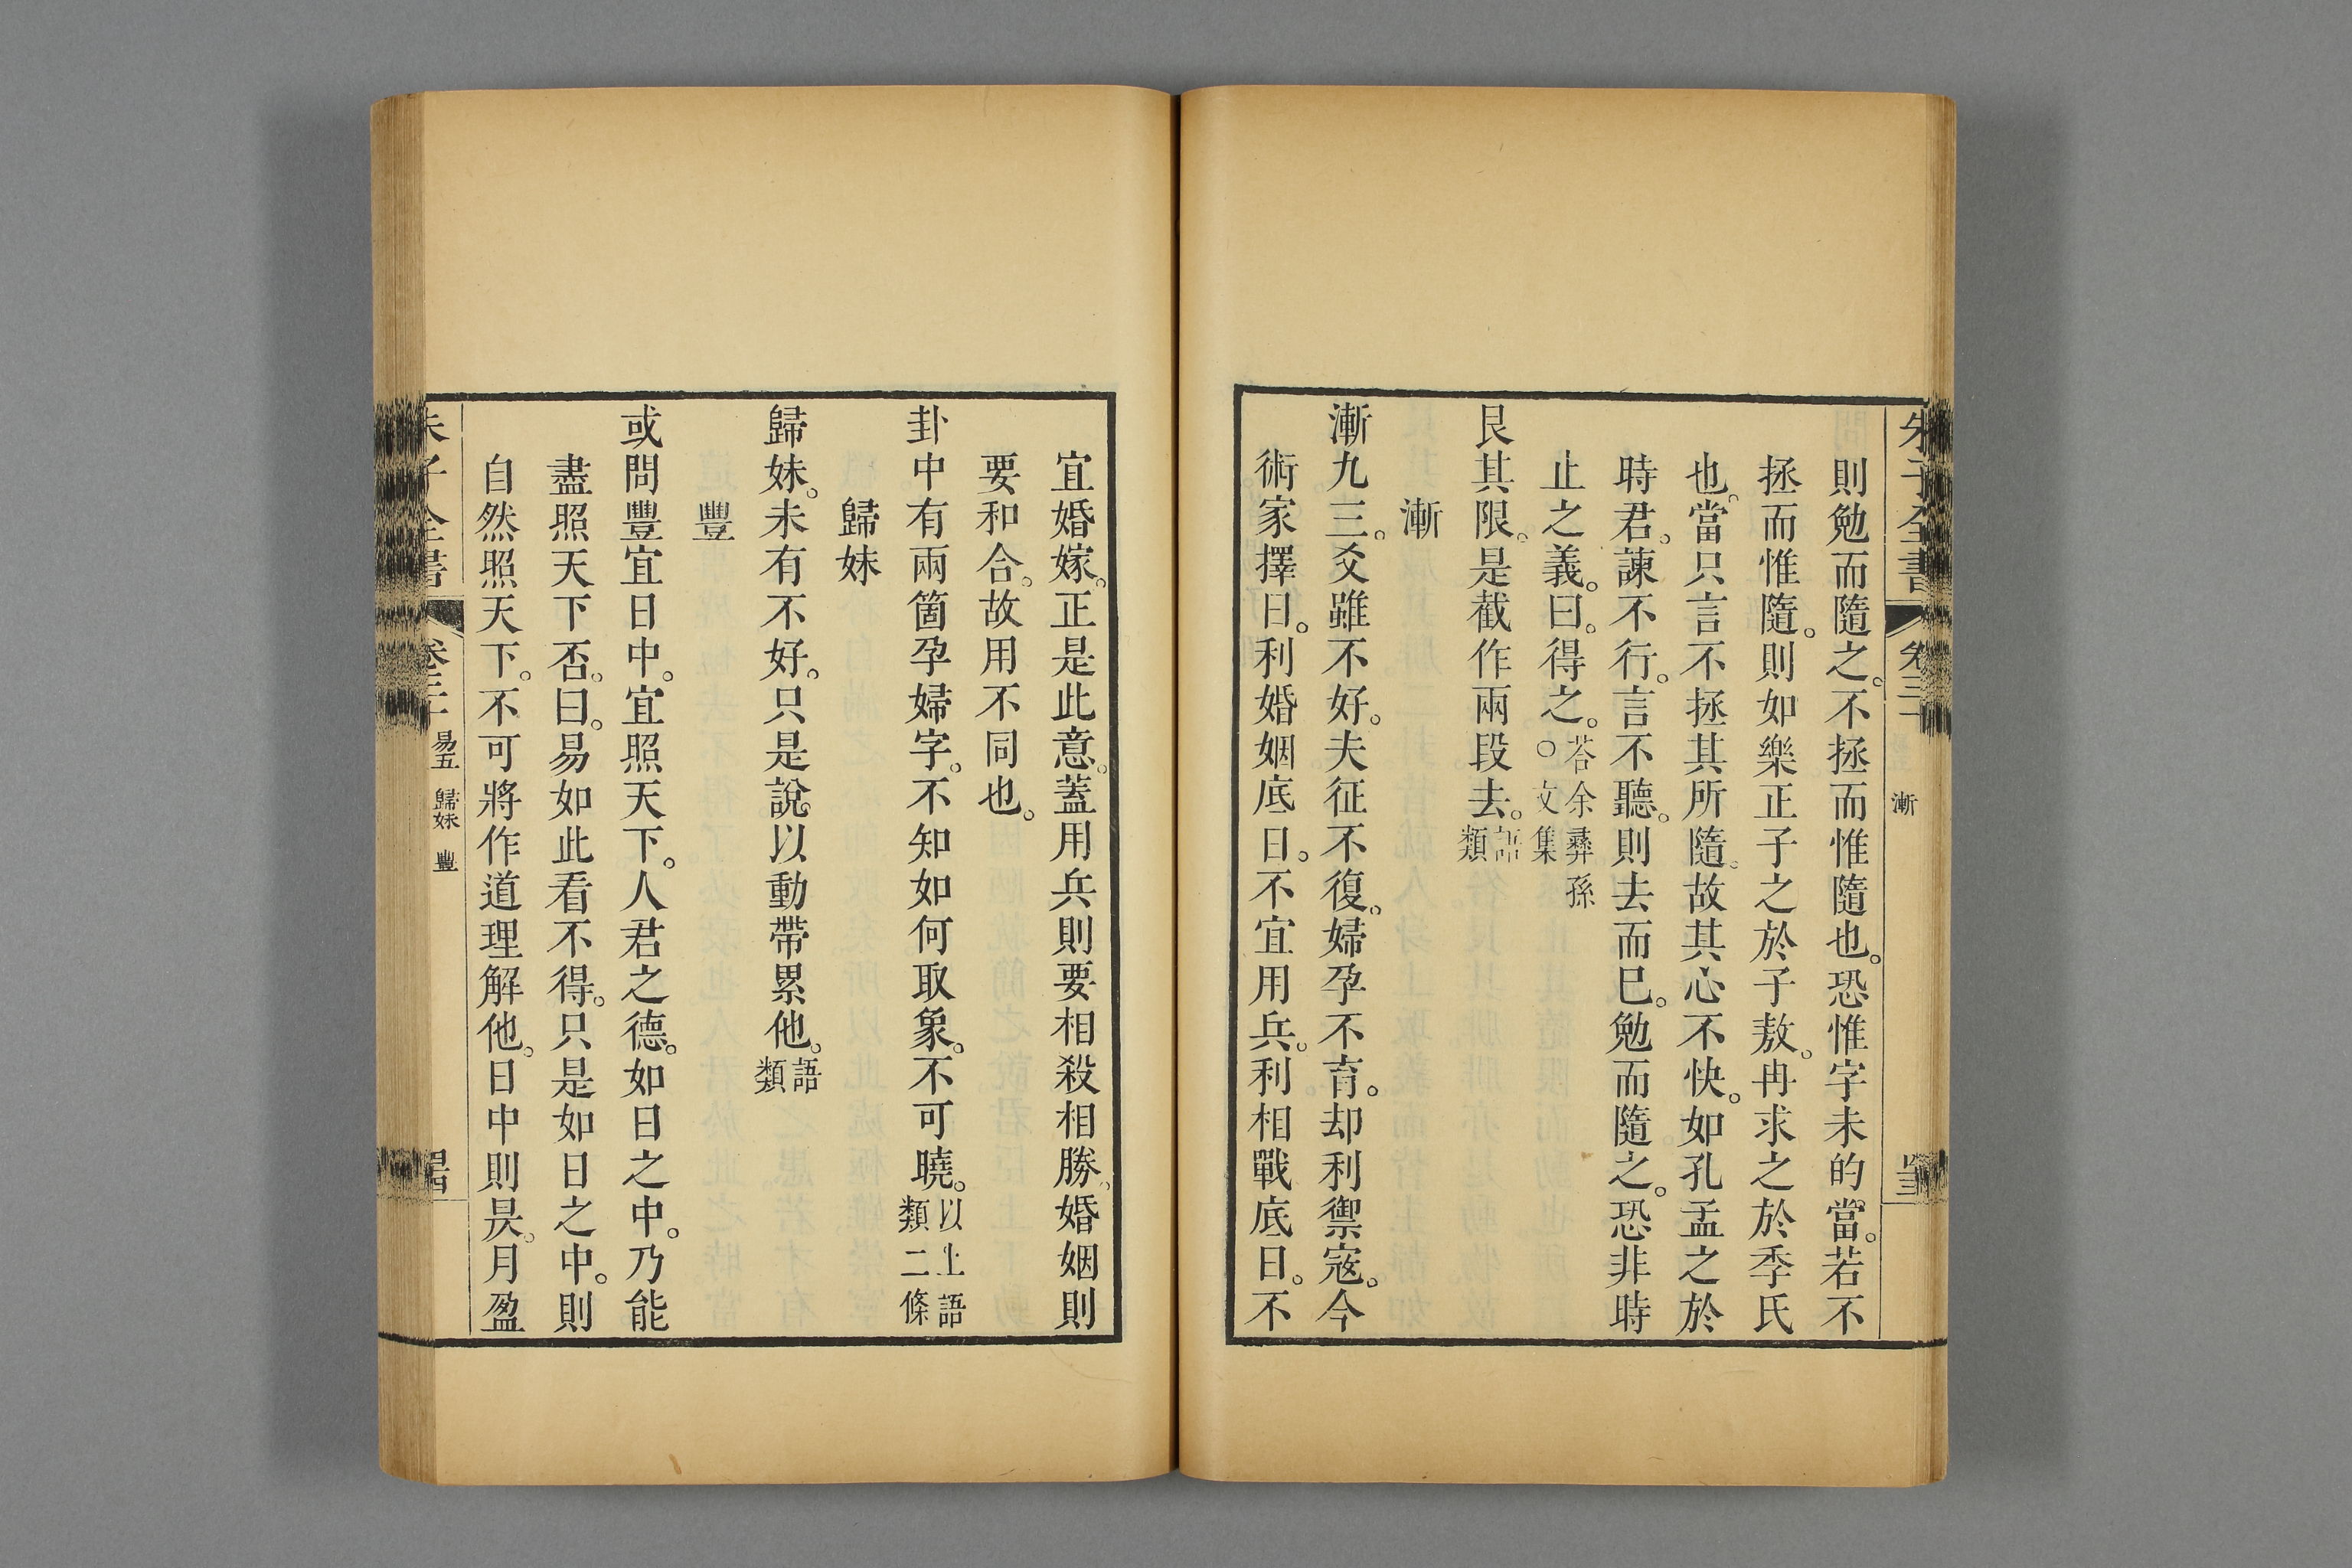 則勉而隨之。不拯而惟隨也。恐惟字未的當。若不
拯而惟隨。則如樂正子之於子敖。冉求之於季氏
也。當只言不拯其所隨。故其心不快。如孔孟之於
時君。諫不行。言不聽。則去而已。勉而隨之。恐非時
止之義。曰。得之。○答余彝孫 文集
艮其限。是截作兩段去。語類
漸
漸九三。爻雖不好。夫征不復。婦孕不育。却利禦寇。今
術家擇日。利婚姻底日。不宜用兵。利相戰底日。不
朱子全書 卷三十 漸
宜婚嫁。正是此意。蓋用兵則要相殺相勝。婚姻則
要和合。故用不同也。
卦中有兩箇孕婦字。不知如何取象。不可曉。以上語類二條
歸妹
歸妹。未有不好。只是說以動帶累他。語類
豐
或問豐宜日中。宜照天下。人君之德。如日之中。乃能
盡照天下否。曰。易如此看不得。只是如日之中。則
自然照天下。不可將作道理解他。日中則昃。月盈
朱子全書 卷三十 易五 歸妹 豐